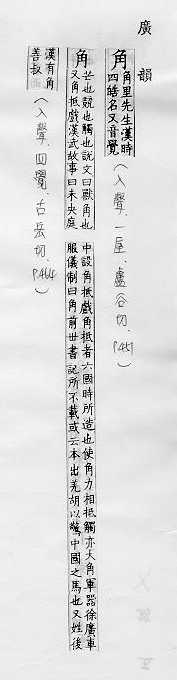 廣韻
角
角里先生漢時
四皓名又音覺
（入聲．一屋．盧谷切．P.451）
角
芒也競也觸也說文曰獸角也
又角抵戲漢武故事曰未央庭
中設角抵戲角抵者六國時所造也使角力相抵觸亦大角軍器徐廣車
服儀制曰角前世書記所不載或云本出羌胡以驚中國之馬也又姓後
漢有角
善叔
（入聲．四覺．古岳切．P.464）